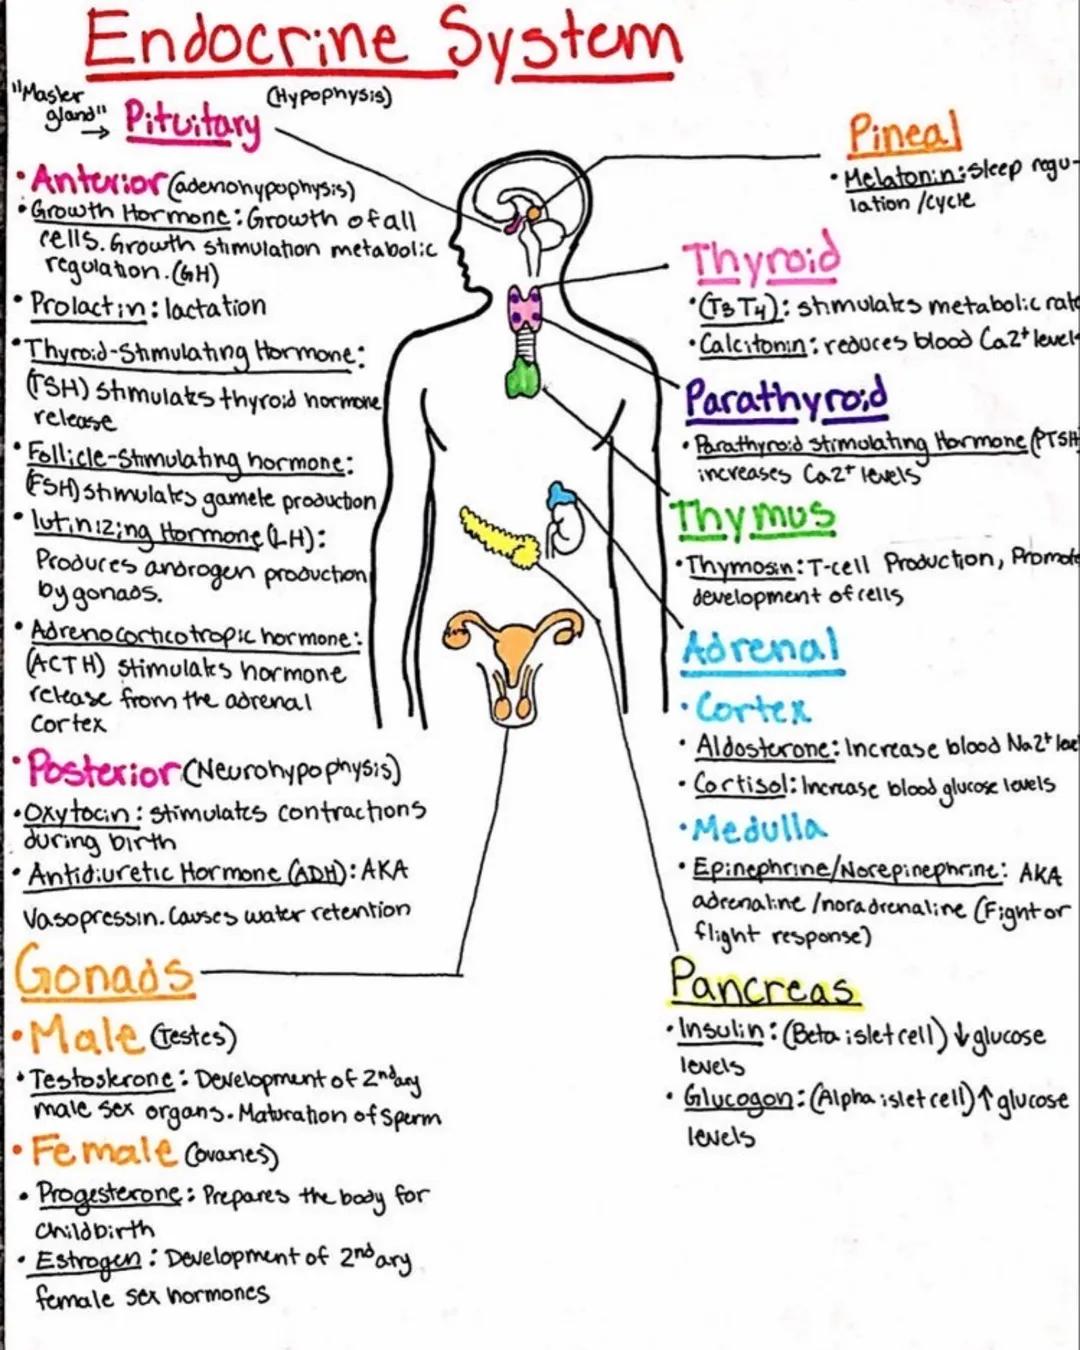 Endocrine System
"Master gland" → Pituitary (Hypophysis)
• Anterior (adenohypophysis)
• Growth Hormone: Growth of all
cells. Growth stimulation metabolic
regulation. (GH)
• Prolactin: lactation
• Thyroid-Stimulating Hormone:
(TSH) stimulates thyroid hormone
release
• Follicle-Stimulating hormone:
(FSH) stimulates gamete production
• lutinizing Hormone (LH):
Produces androgen production
by gonads.
• Adrenocorticotropic hormone:
(ACTH) stimulates hormone
release from the adrenal
cortex
• Posterior (Neurohypophysis)
• Oxytocin: stimulates contractions
during birth
• Antidiuretic Hormone (ADH): AKA
Vasopressin. Causes water retention
Gonads
• Male (Testes)
• Testosterone: Development of 2ndary
male sex organs. Maturation of sperm
• Female (ovaries)
• Progesterone: Prepares the body for
childbirth
• Estrogen: Development of 2ndary
female sex hormones
Pineal
• Melatonin: sleep regu-
lation /cycle
Thyroid
• (T3 T4): stimulates metabolic rate
• Calcitonin: reduces blood Ca2+ level
Parathyroid
• Parathyroid stimulating Hormone (PTSH
increases Ca2+ levels
Thymus
• Thymosin: T-cell Production, Promote
development of cells
Adrenal
• Cortex
• Aldosterone: Increase blood Na2+
• Cortisol: Increase blood glucose levels
• Medulla
• Epinephrine/Norepinephrine: AKA
adrenaline /noradrenaline (Fight or
flight response)
Pancreas
• Insulin: (Beta islet cell) ↓ glucose
levels
• Glucogon: (Alpha islet cell) ↑ glucose
levels